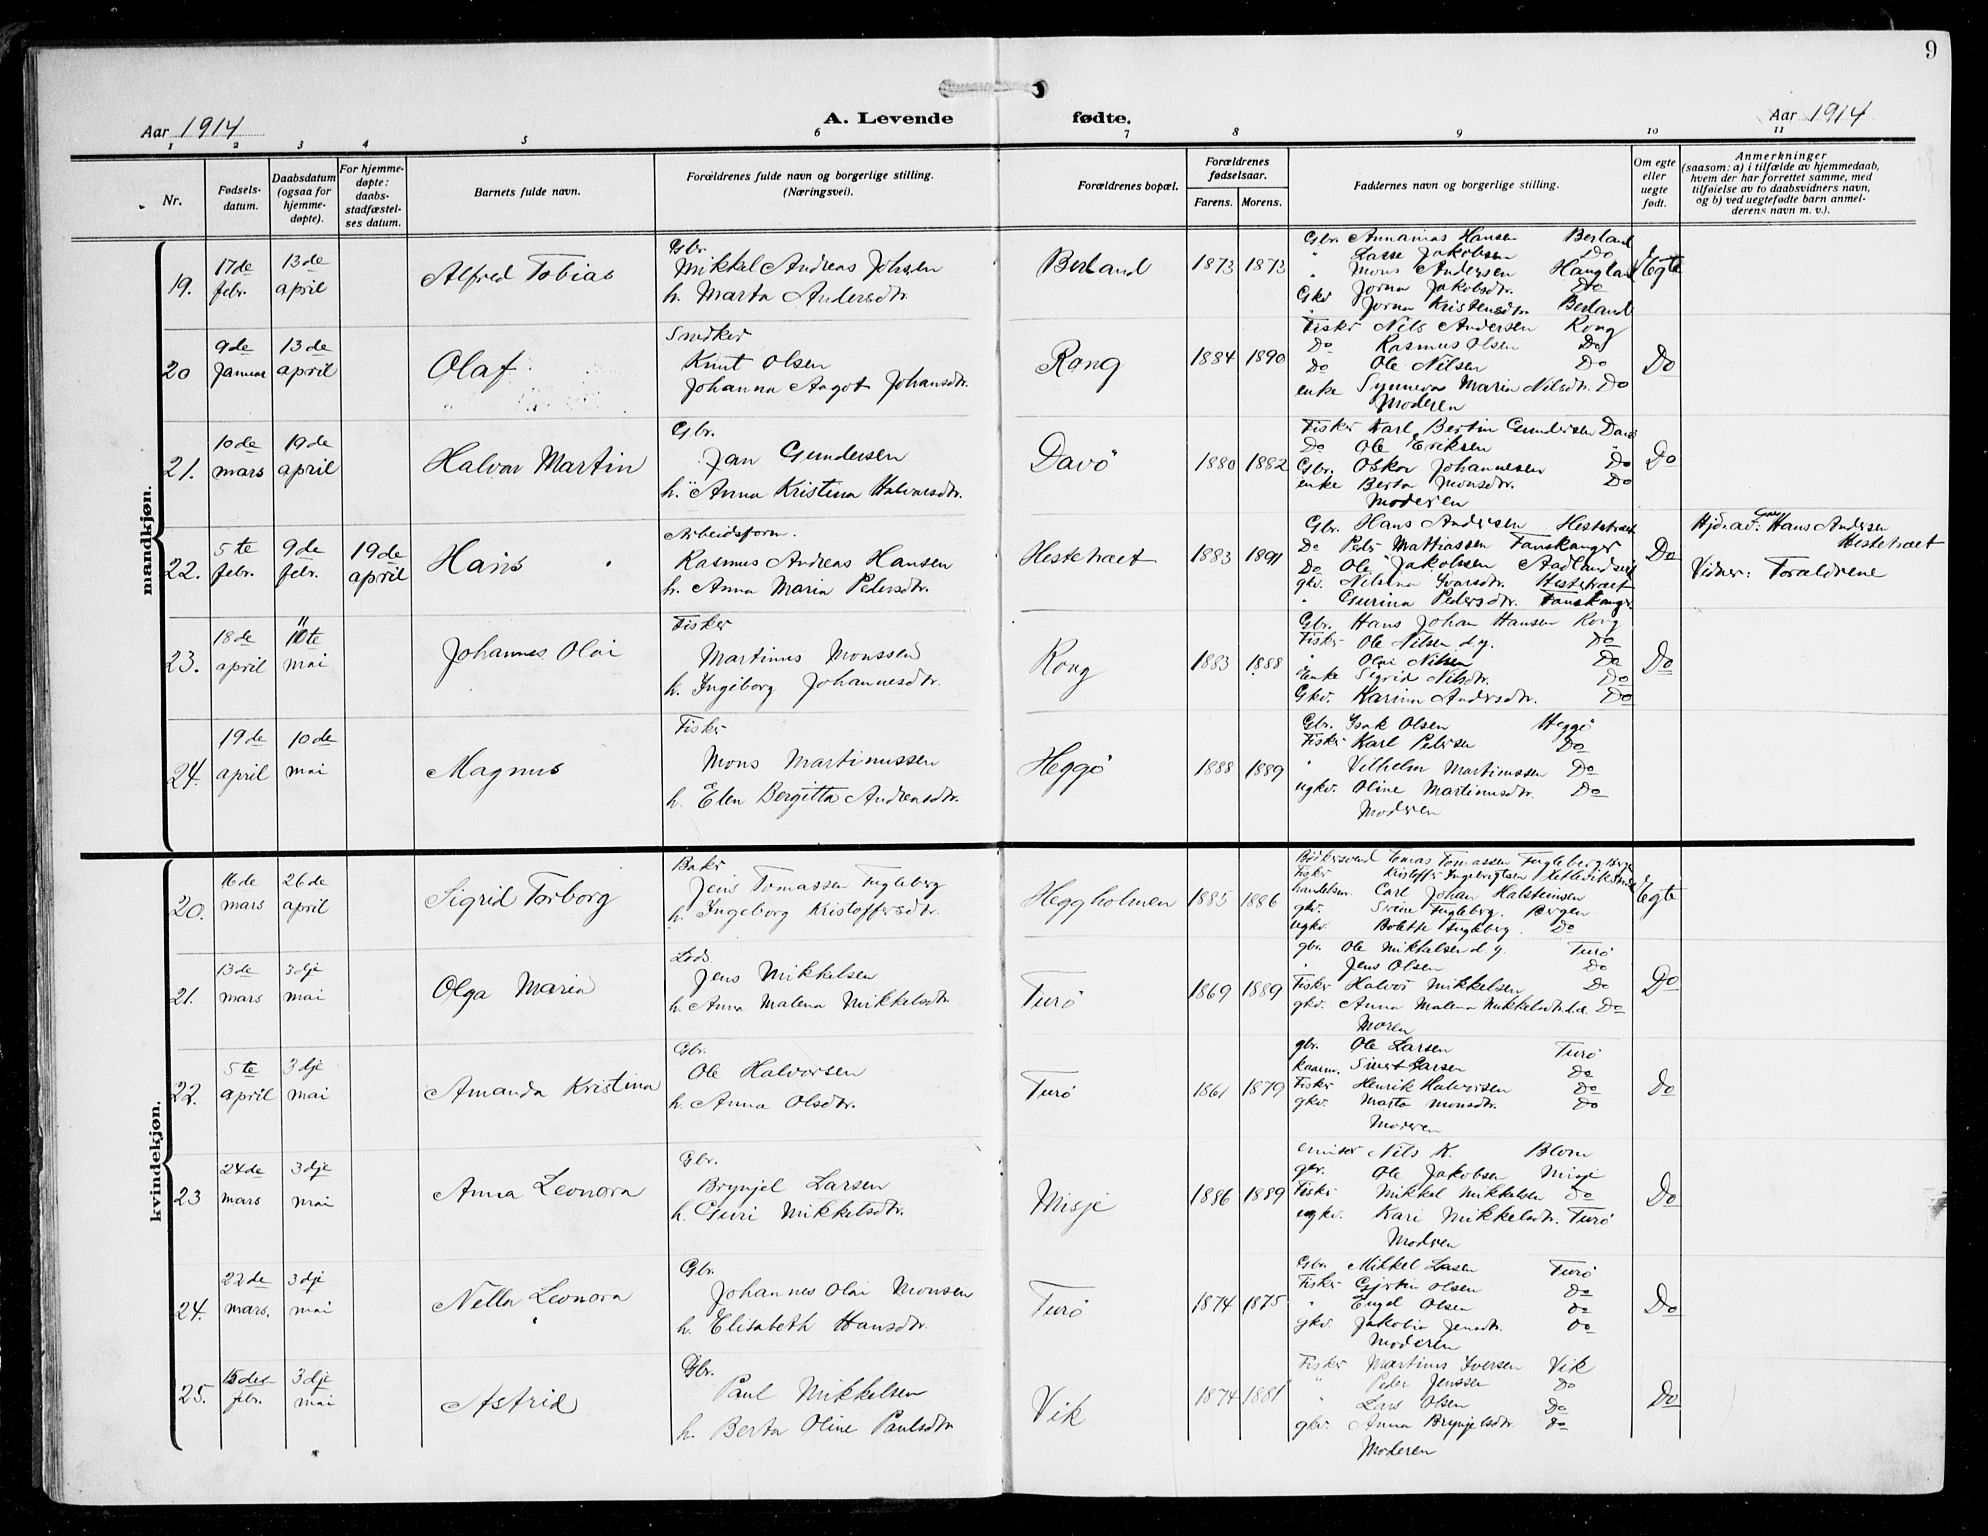 9
Aar 1914
A. Levende fødte.
Aar 1914
1 2 3 4 5 6 7 8 9 10 11
Nr.
Fødsels-
datum.
Daabsdatum
(ogsaa for
hjemme-
døpte).
For hjemme-
døpte:
daabs-
stadfæstel-
ses datum.
Barnets fulde navn.
Forældrenes fulde navn og borgerlige stilling.
(Næringsvei).
Forældrenes bopæl.
Forældrenes
fødselsaar.
Farens. Morens.
Faddernes navn og borgerlige stilling.
Om egte
eller
uegte
født.
Anmerkninger
(saasom: a) i tilfælde av hjemmedaab,
hvem der har forrettet samme, med
tilføielse av to daabsvidners navn,
og b) ved uegtefødte barn anmel-
derens navn m. v.).
mandkjøn.
19. 17de febr. 13de april Alfred Tobias
Gbr.
Mikkel Andreas Johnsen
h. Marta Andersdtr.
Berland 1873 1873
Gbr. Annanias Hansen Berland
" Lasse Jakobsen Do
" Mons Andersen Haugland
Gkv. Jorna Jakobsdtr. Do
" Jorna Kristensdtr. Berland
Egte
20 9de Januar 13de april Olaf
Snedker
Knut Olsen
Johanna Aagot Johansdtr.
Rong 1884 1890
Fisker Nils Andersen Rong
Do Rasmus Olsen Do
Do Ole Nilsen Do
enke Synneva Maria Nilsdtr. Do
Moderen
Do
21. 10de mars 19de april Halvar Martin
Gbr.
Jan Gundersen
h. Anna Kristina Halvarsdtr.
Davø 1880 1882
Fisker Karl Bertin Gundersen Davø
Do Ole Eriksen Do
Gbr. Oskar Johannesen Do
enke Berta Monsdtr. Do
Moderen
Do
22. 5te febr. 9de febr. 19de april Hans
Arbeidsform.
Rasmus Andreas Hansen
h. Anna Maria Pedersdtr.
Hestetræet 1883 1891
Gbr. Hans Andersen Hestetræet
Do Peder Mathiassen Fanskanger
Do Ole Jakobsen Aadlandsvik
gkv. Nilsina Ivarsdtr. Hestetræet
" Gurina Pedersdtr. Fanskanger
Do
Hjd. av: Hans Andersen
Hestetræet
Vidner: Forældrene
23. 18de april 10te mai Johannes Olai
Fisker
Martinus Monssen
h. Ingeborg Johannesdtr.
Rong 1883 1888
Gbr. Hans Johan Hansen Rong
Fisker Ole Nilsen d.y. Do
" Olai Nilsen Do
Enke Sigrid Nilsdtr. Do
Gkv. Karina Andersdtr. Do
Do
24. 19de april 10de mai Magnus
Fisker
Mons Martinussen
h. Elen Bergitta Andreasdtr.
Heggø 1888 1889
Gbr. Isak Olsen Heggø
Fisker Karl Pedersen Do
" Vilhelm Martinussen Do
ugkv. Oline Martinusdtr. Do
Moderen
kvindekjøn.
20. 16de mars 26de april Sigrid Torborg
Baker
Jens Tomassen Fugleberg
h. Ingeborg Kristoffersdtr.
Heggholmen 1885 1886
Bøkersvend Tomas Tomassen Fugleberg
Fisker Kristoffer Ingebrigtsen
handelsm. Carl Johan Halsteinsen
gkv. Sirine Fugleberg. Bergen
ugkv. Bolette Fugleberg. Do
Egte
21. 13de mars 3dje mai Olga Maria
Lods
Jens Mikkelsen
h. Anna Malena Mikkelsdtr.
Turø 1869 1889
gbr. Ole Mikkelsen d.y. Turø
" Jens Olsen Do
Fisker Halvor Mikkelsen Do
gkv. Anna Malena Mikkelsdtr. Do
Moren
Do
22. 5te april 3dje mai Amanda Kristina
Gbr.
Ole Halvorsen
h. Anna Olsdtr.
Turø 1861 1879
gbr. Ole Larsen Turø
kaarm. Sivert Larsen Do
Fisker Henrik Halvorsen Do
gkv. Marta Monsdtr. Do
Moderen
Do
23 24de mars 3dje mai Anna Leonora
Gbr.
Brynjel Larsen
h. Guri Mikkelsdtr.
Misje 1886 1889
emisær Nils K. Blom
gbr. Ole Jakobsen Misje
Fisker Mikkel Mikkelsen Do
ugkv. Kari Mikkelsdtr. Turø
Modren
Do
24. 22de mars. 3dje mai Nella Leonora
Gbr.
Johannes Olai Monsen
h. Elisabeth Hansdtr.
Turø 1874 1875
Gbr. Mikkel Lasen Turø
Fisker Gjertin Olsen Do
" Engel Olsen Do
gkv. Jakobia Jensdtr. Do
Moderen
Do
25. 15des febr. 3dje mai Astrid
Gbr.
Paul Mikkelsen
h. Berta Oline Paulsdtr.
Vik 1874 1881
Fisker Martinus Iversen Vik
" Peder Jenssen Do
" Lars Olsen Do
gkv. Anna Brynjelsdtr. Do
Moderen
Do